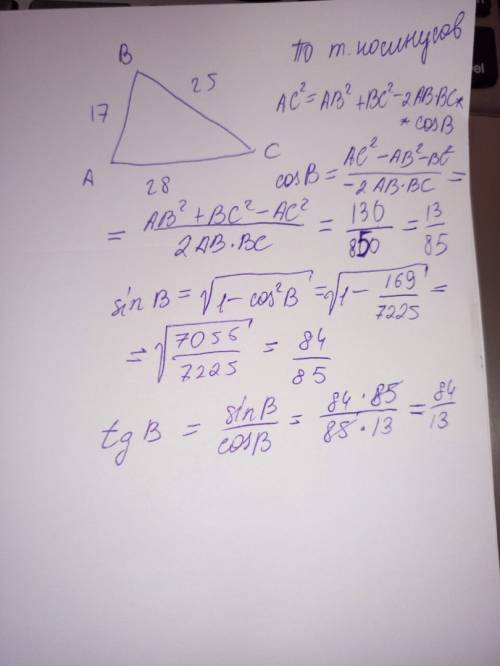 По т. косинусов
B
25
17
A
C
28
AC² = AB² + BC² - 2AB·BC*
* cosB
cosB = (AC² - AB² - BC²)/(-2AB·BC) =
= (AB² + BC² - AC²)/(2AB·BC) = 130/850 = 13/85
sin B = √(1 - cos²B) = √(1 - 169/7225) =
= √(7056/7225) = 84/85
tg B = sinB/cosB = (84·85)/(85·13) = 84/13